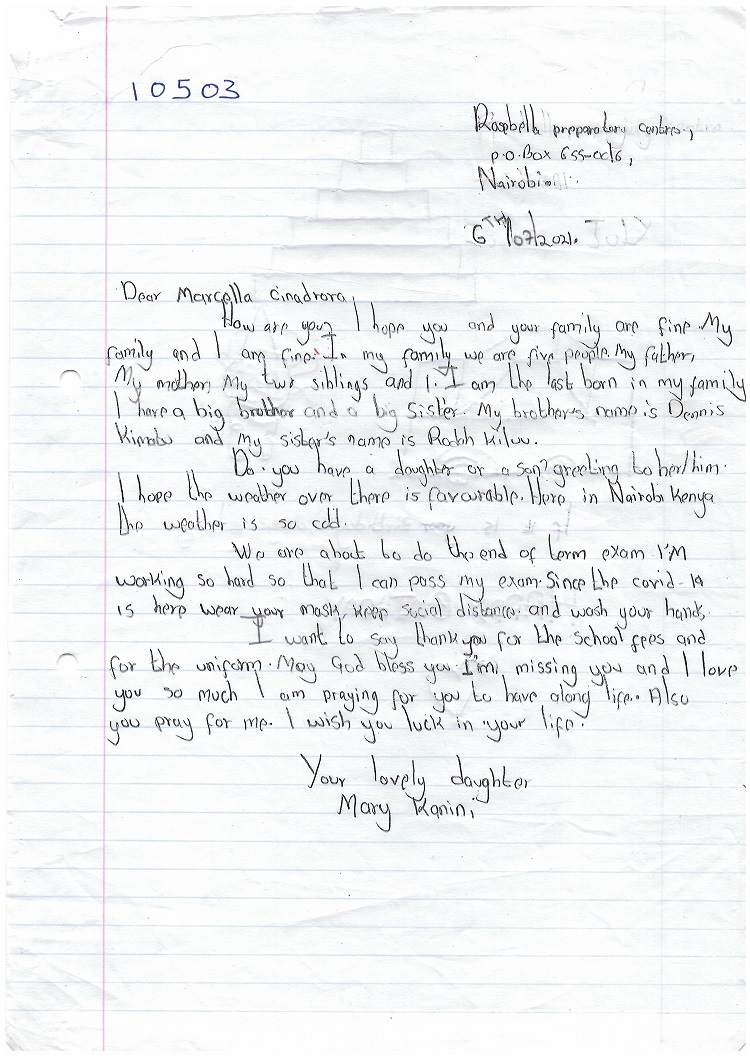 10503
Rosebella preparatory centre,
p.o.Box 655-00516,
Nairobi.
6TH/07/2021.
Dear Marcella Cinadrora,
How are you? I hope you and your family are fine. My
family and I am fine. In my family we are five people. My father,
My mother, My two siblings and I. I am the last born in my family
I have a big brother and a big Sister. My brother's name is Dennis
and my sister's name is
Do. you have a daughter or a son? greeting to her/him.
I hope the weather over there is favourable. Here in Nairobi Kenya
the weather is so cold.
We are about to do the end of term exam I'M
working so hard so that I can pass my exam. Since the covid-19
is here wear your mask, keep social distance. and wash your hands.
I want to say thankyou for the school fees and
for the uniform. May God bless you. I'm, missing you and I love
you so much I am praying for you to have along life.. Also
you pray for me. I wish you luck in your life.
Your lovely daughter
Mary Kanini